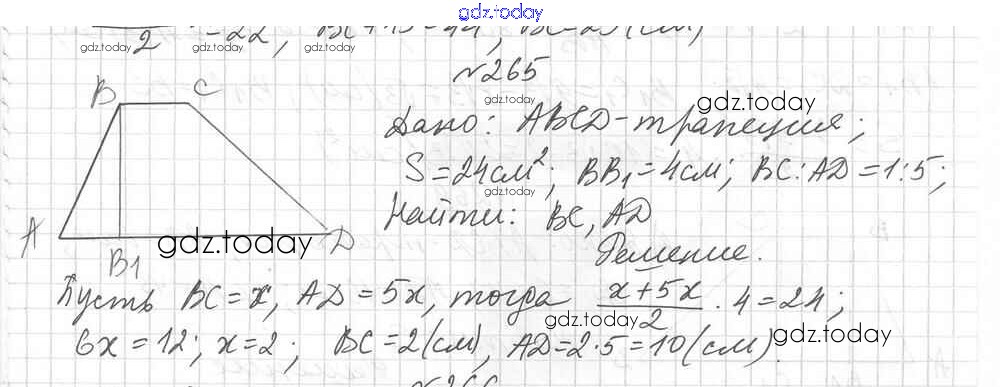 gdz.today
2 = 22, BC + 15 = 44, BC = 29 (см)
gdz.today gdz.today gdz.today
№265
B C
gdz.today gdz.today
Дано: ABCD - трапеция;
S = 24см²; BB₁ = 4см; BC:AD = 1:5;
gdz.today
Найти: BC, AD
A B₁ D
gdz.today
Решение.
Пусть BC = x, AD = 5x, тогда (x+5x)/2 · 4 = 24;
gdz.today gdz.today
6x = 12; x = 2; BC = 2 (см), AD = 2·5 = 10 (см).
gdz.today
№266